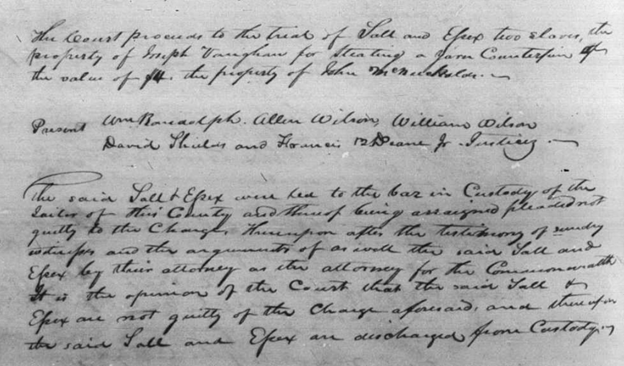 The Court proceeds to the trial of Sall and Essex two slaves, the
property of Joseph Vaughan for Stealing a yarn Counterpin of
the value of $4. the property of John
Present Wm Randolph. Allen Wilson, William Wilson
David Shields and Francis B Deane Jr. Justices
The said Sall & Essex were led to the bar in Custody of the
Jailor of this County and thereof being arraigned pleaded not
guilty to the Charge, thereupon after the testimony of sundry
witnesses and the arguments of as well the said Sall and
Essex by their attorney as the attorney for the Commonwealth
It is the opinion of the Court that the said Sall &
Essex are not guilty of the Charge aforesaid. and thereupon
the said Sall and Essex are discharged from Custody.